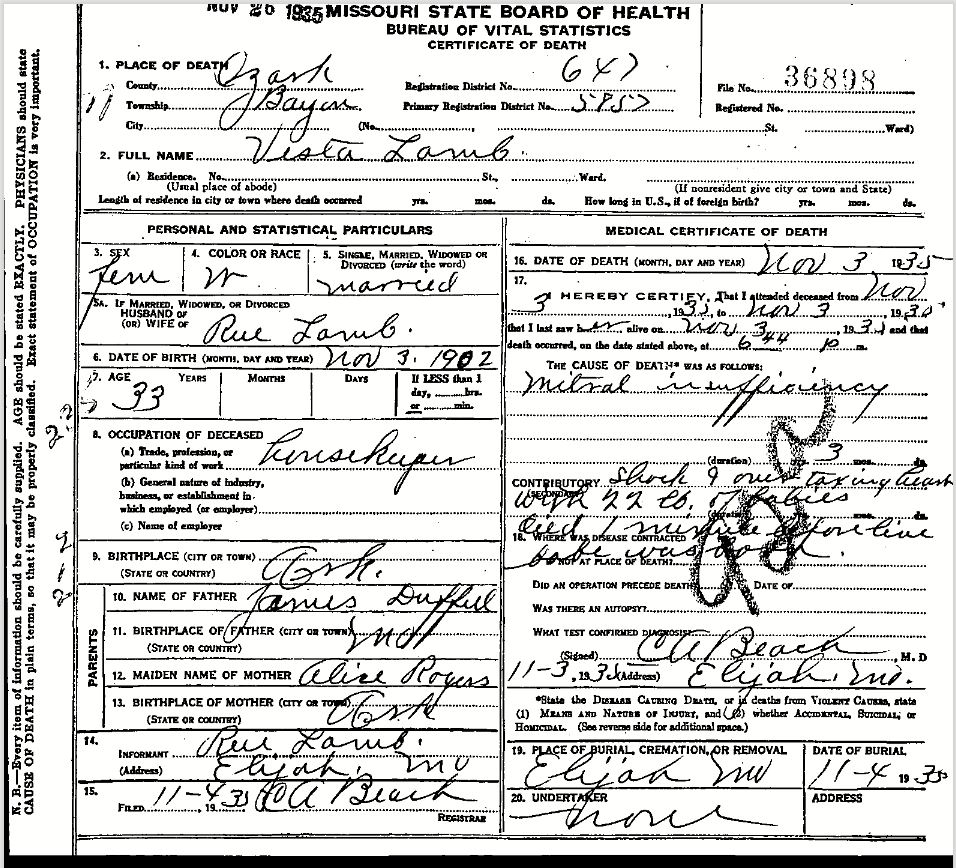 NOV 26 1935 MISSOURI STATE BOARD OF HEALTH
BUREAU OF VITAL STATISTICS
CERTIFICATE OF DEATH
1. PLACE OF DEATH
County Ozark Registration District No. 647 File No. 36898
Township Bayou Primary Registration District No. 5857 Registered No.
City (No. , St. Ward)
2. FULL NAME Vesta Lamb.
(a) Residence. No. St., Ward.
(Usual place of abode) (If nonresident give city or town and State)
Length of residence in city or town where death occurred yrs. mos. ds. How long in U.S., if of foreign birth? yrs. mos. ds.
PERSONAL AND STATISTICAL PARTICULARS
3. SEX 4. COLOR OR RACE 5. SINGLE, MARRIED, WIDOWED OR DIVORCED (write the word)
fem W married
5A. IF MARRIED, WIDOWED, OR DIVORCED
HUSBAND OF
(OR) WIFE OF Rue Lamb.
6. DATE OF BIRTH (MONTH, DAY AND YEAR) Nov 3. 1902
7. AGE YEARS MONTHS DAYS If LESS than 1 day, hrs. or min.
33
8. OCCUPATION OF DECEASED
(a) Trade, profession, or particular kind of work housekeeper
(b) General nature of industry, business, or establishment in which employed (or employer)
(c) Name of employer
9. BIRTHPLACE (CITY OR TOWN)
(STATE OR COUNTRY) Ark.
PARENTS
10. NAME OF FATHER James Duffell
11. BIRTHPLACE OF FATHER (CITY OR TOWN) Mo
(STATE OR COUNTRY)
12. MAIDEN NAME OF MOTHER Alice Rogers
13. BIRTHPLACE OF MOTHER (CITY OR TOWN)
(STATE OR COUNTRY) Ark
14.
INFORMANT Rue Lamb.
(Address) Elijah, Mo
15.
FILED 11-4, 1935 CA Beach
REGISTRAR
MEDICAL CERTIFICATE OF DEATH
16. DATE OF DEATH (MONTH, DAY AND YEAR) Nov 3 1935
17.
I HEREBY CERTIFY, That I attended deceased from Nov
3, 1935, to Nov 3, 1935
that I last saw her alive on Nov 3, 1935 and that
death occurred, on the date stated above, at 6 44 p m.
THE CAUSE OF DEATH* WAS AS FOLLOWS:
Mitral insufficiency
(duration) yrs. 3 mos. ds.
CONTRIBUTORY Shock & over taxing heart
(SECONDARY) with 22 lb. of babies
died 1 minute before live
18. WHERE WAS DISEASE CONTRACTED
babe was born.
IF NOT AT PLACE OF DEATH?
DID AN OPERATION PRECEDE DEATH? DATE OF
WAS THERE AN AUTOPSY?
WHAT TEST CONFIRMED DIAGNOSIS?
(Signed) CA Beach, M. D
11-3, 1935 (Address) Elijah, Mo.
*State the DISEASE CAUSING DEATH, or in deaths from VIOLENT CAUSES, state
(1) MEANS AND NATURE OF INJURY, and (2) whether ACCIDENTAL, SUICIDAL, or
HOMICIDAL. (See reverse side for additional space.)
19. PLACE OF BURIAL, CREMATION, OR REMOVAL DATE OF BURIAL
Elijah Mo 11-4 1935
20. UNDERTAKER ADDRESS
none
N. B.—Every item of information should be carefully supplied. AGE should be stated EXACTLY. PHYSICIANS should state
CAUSE OF DEATH in plain terms, so that it may be properly classified. Exact statement of OCCUPATION is very important.